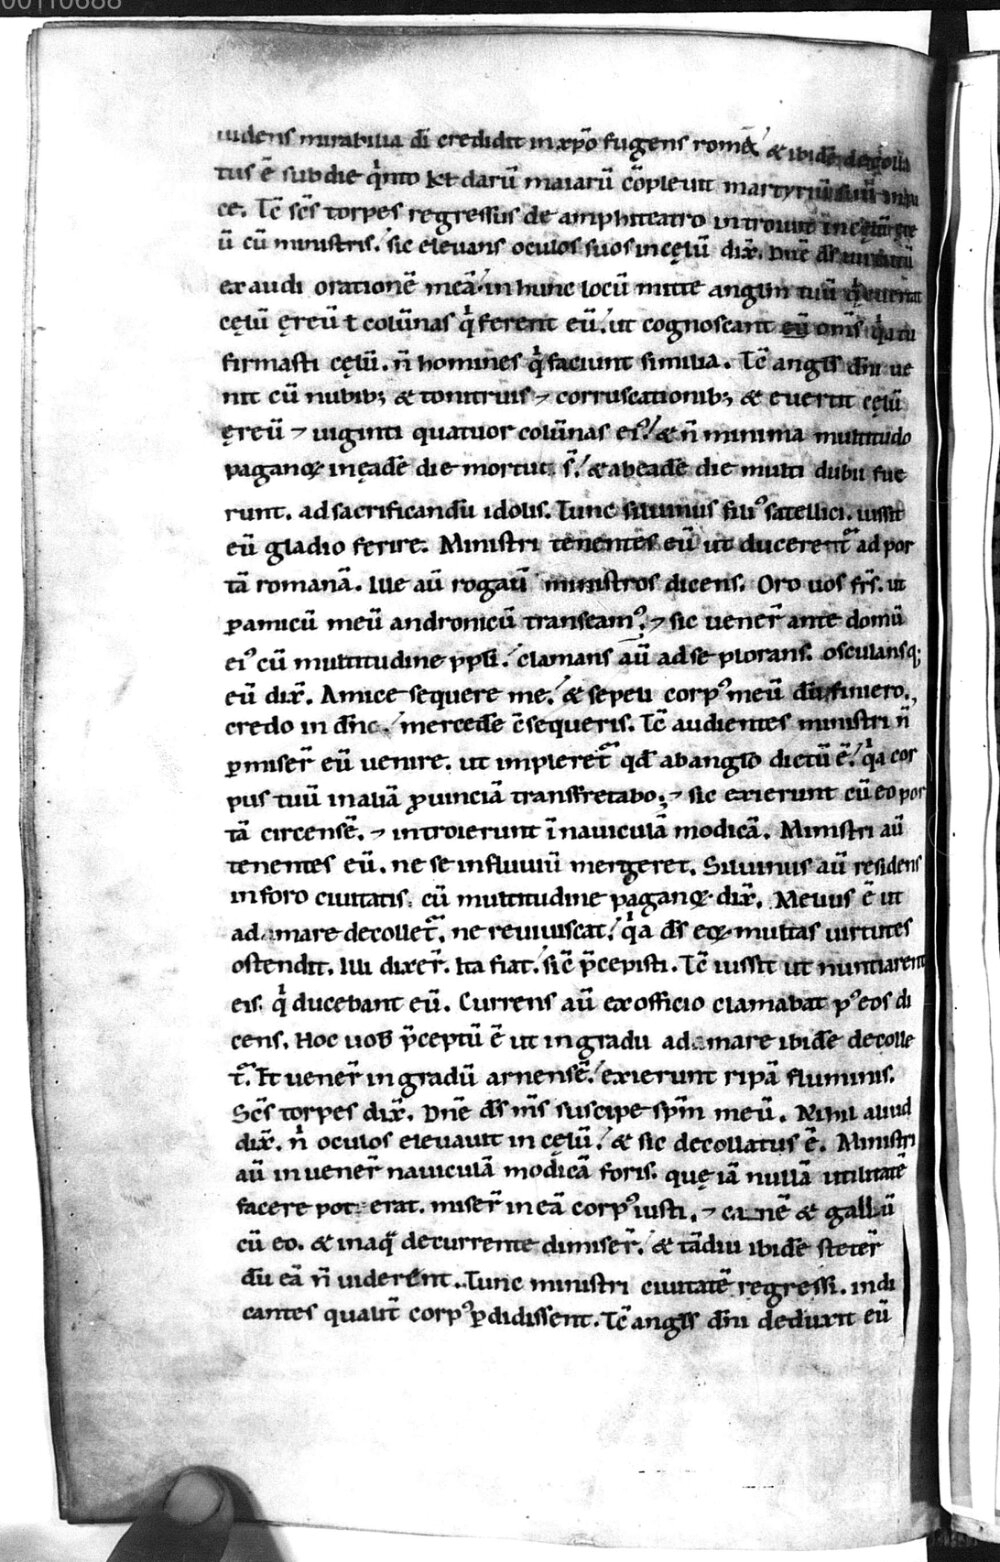 00110688
uidens mirabilia dī credidit in xp̄o fugens romā / & ibidē decolla
tus ē sub die q̇nto kl darū maiarū cōpleuit martyriū
ce. Tc̄ sc̄s torpes regressus de amphiteatro introiuit in cęlū ęre
ū cū ministris. sic eleuans oculos suos in cęlū dix̄. Dn̄e ds̄ uirtutū
exaudi orationē meā. in hunc locū mitte anglm̄ tuū q̇ euertat
cęlū ęreū ⁊ colūnas q̇ ferent eū. ut cognoscant om̄s q̇a tu
firmasti cęlū. n̄ homines q̇ faciunt similia. Tc̄ angls̄ dn̄i ue
nit cū nubib; & tonitruis ⁊ corruscationib; & euertit cęlū
ęreū ⁊ uiginti quatuor colūnas ei᾽. & n̄ minima multitudo
paganoꝝ in eadē die mortui s̄. & ab eadē die multi dubii fue
runt. ad sacrificandū idolis. Tunc siluinus fili᾽ satellici. iussit
eū gladio ferire. Ministri tenentes eū ut ducerent᷒ ad por
tā romanā. Ille aū rogauit ministros dicens. Oro uos frs̄. ut
ꝑ amicū meū andronicū transeam᾽. ⁊ sic uener̄ ante domū
ei᾽ cū multitudine ppl̄i. clamans aū ad se plorans. osculansq;
eū dix̄. Amice sequere me. & sepeli corp᾽ meū dū finiero.,
credo in dn̄o. mercedē c̄sequeris. Tc̄ audientes ministri n̄
ꝑmiser̄ eū uenire. ut impleret᷒ qd̄ ab anglo dictū ē. q̇a cor
pus tuū in aliā ꝓuinciā transfretabo. ⁊ sic exierunt cū eo por
tā circensē. ⁊ introierunt ī nauiculā modicā. Ministri aū
tenentes eū. ne se in fluuiū mergeret. Siluinus aū residens
in foro ciuitatis. cū multitudine paganoꝝ. dix̄. Melius ē ut
ad mare decollet᷒. ne reuiuiscat. q̇a ds̄ eoꝝ multas uirtutes
ostendit. Illi dixer̄. Ita fiat. sic p̄cepisti. Tc̄ iussit ut nuntiarent
eis. q̇ ducebant eū. Currens aū ex officio clamabat p᾽ eos di
cens. Hoc uob̄ p̄ceptū ē ut in gradu ad mare ibidē decolle
t᷒. Et uener̄ in gradū arnensē. exierunt ripā fluminis.
Sc̄s torpes dix̄. Dn̄e ds̄ ms̄ suscipe spm̄ meū. Nihil aliud
dix̄. n̄ oculos eleuauit in cęlū. & sic decollatus ē. Ministri
aū inuener̄ nauiculā modicā foris. quę iā nullā utilitatē
facere pot erat. miser̄ in eā corp᾽ iusti. ⁊ canē & gallū
cū eo. & in aq̄ decurrente dimiser̄. & tādiu ibidē steter̄
dū eā n̄ uiderent. Tunc ministri ciuitatē regressi. indi
cantes qualit̄ corp᾽ ꝑdidissent. Tc̄ angls̄ dn̄i deduxit eū